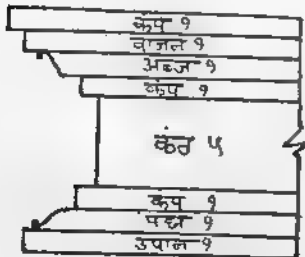 कंप १
वाजन १
अब्ज १
कंप १
कंठ ५
कंप १
पद्म १
उपान १